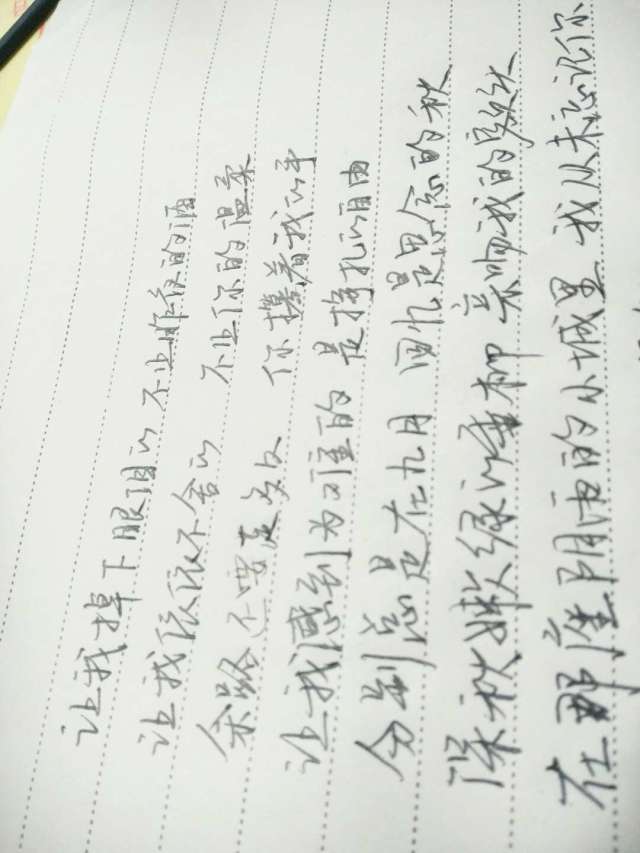 让我掉下眼泪的 不止昨夜的酒
让我依依不舍的 不止你的温柔
余路还要走多久 你攥着我的手
让我感到为难的 是挣扎的自由
分别总是在九月 回忆是思念的秋
深秋嫩绿的垂柳 亲吻我的额头
在那座阴雨的小城里 我从未忘记你